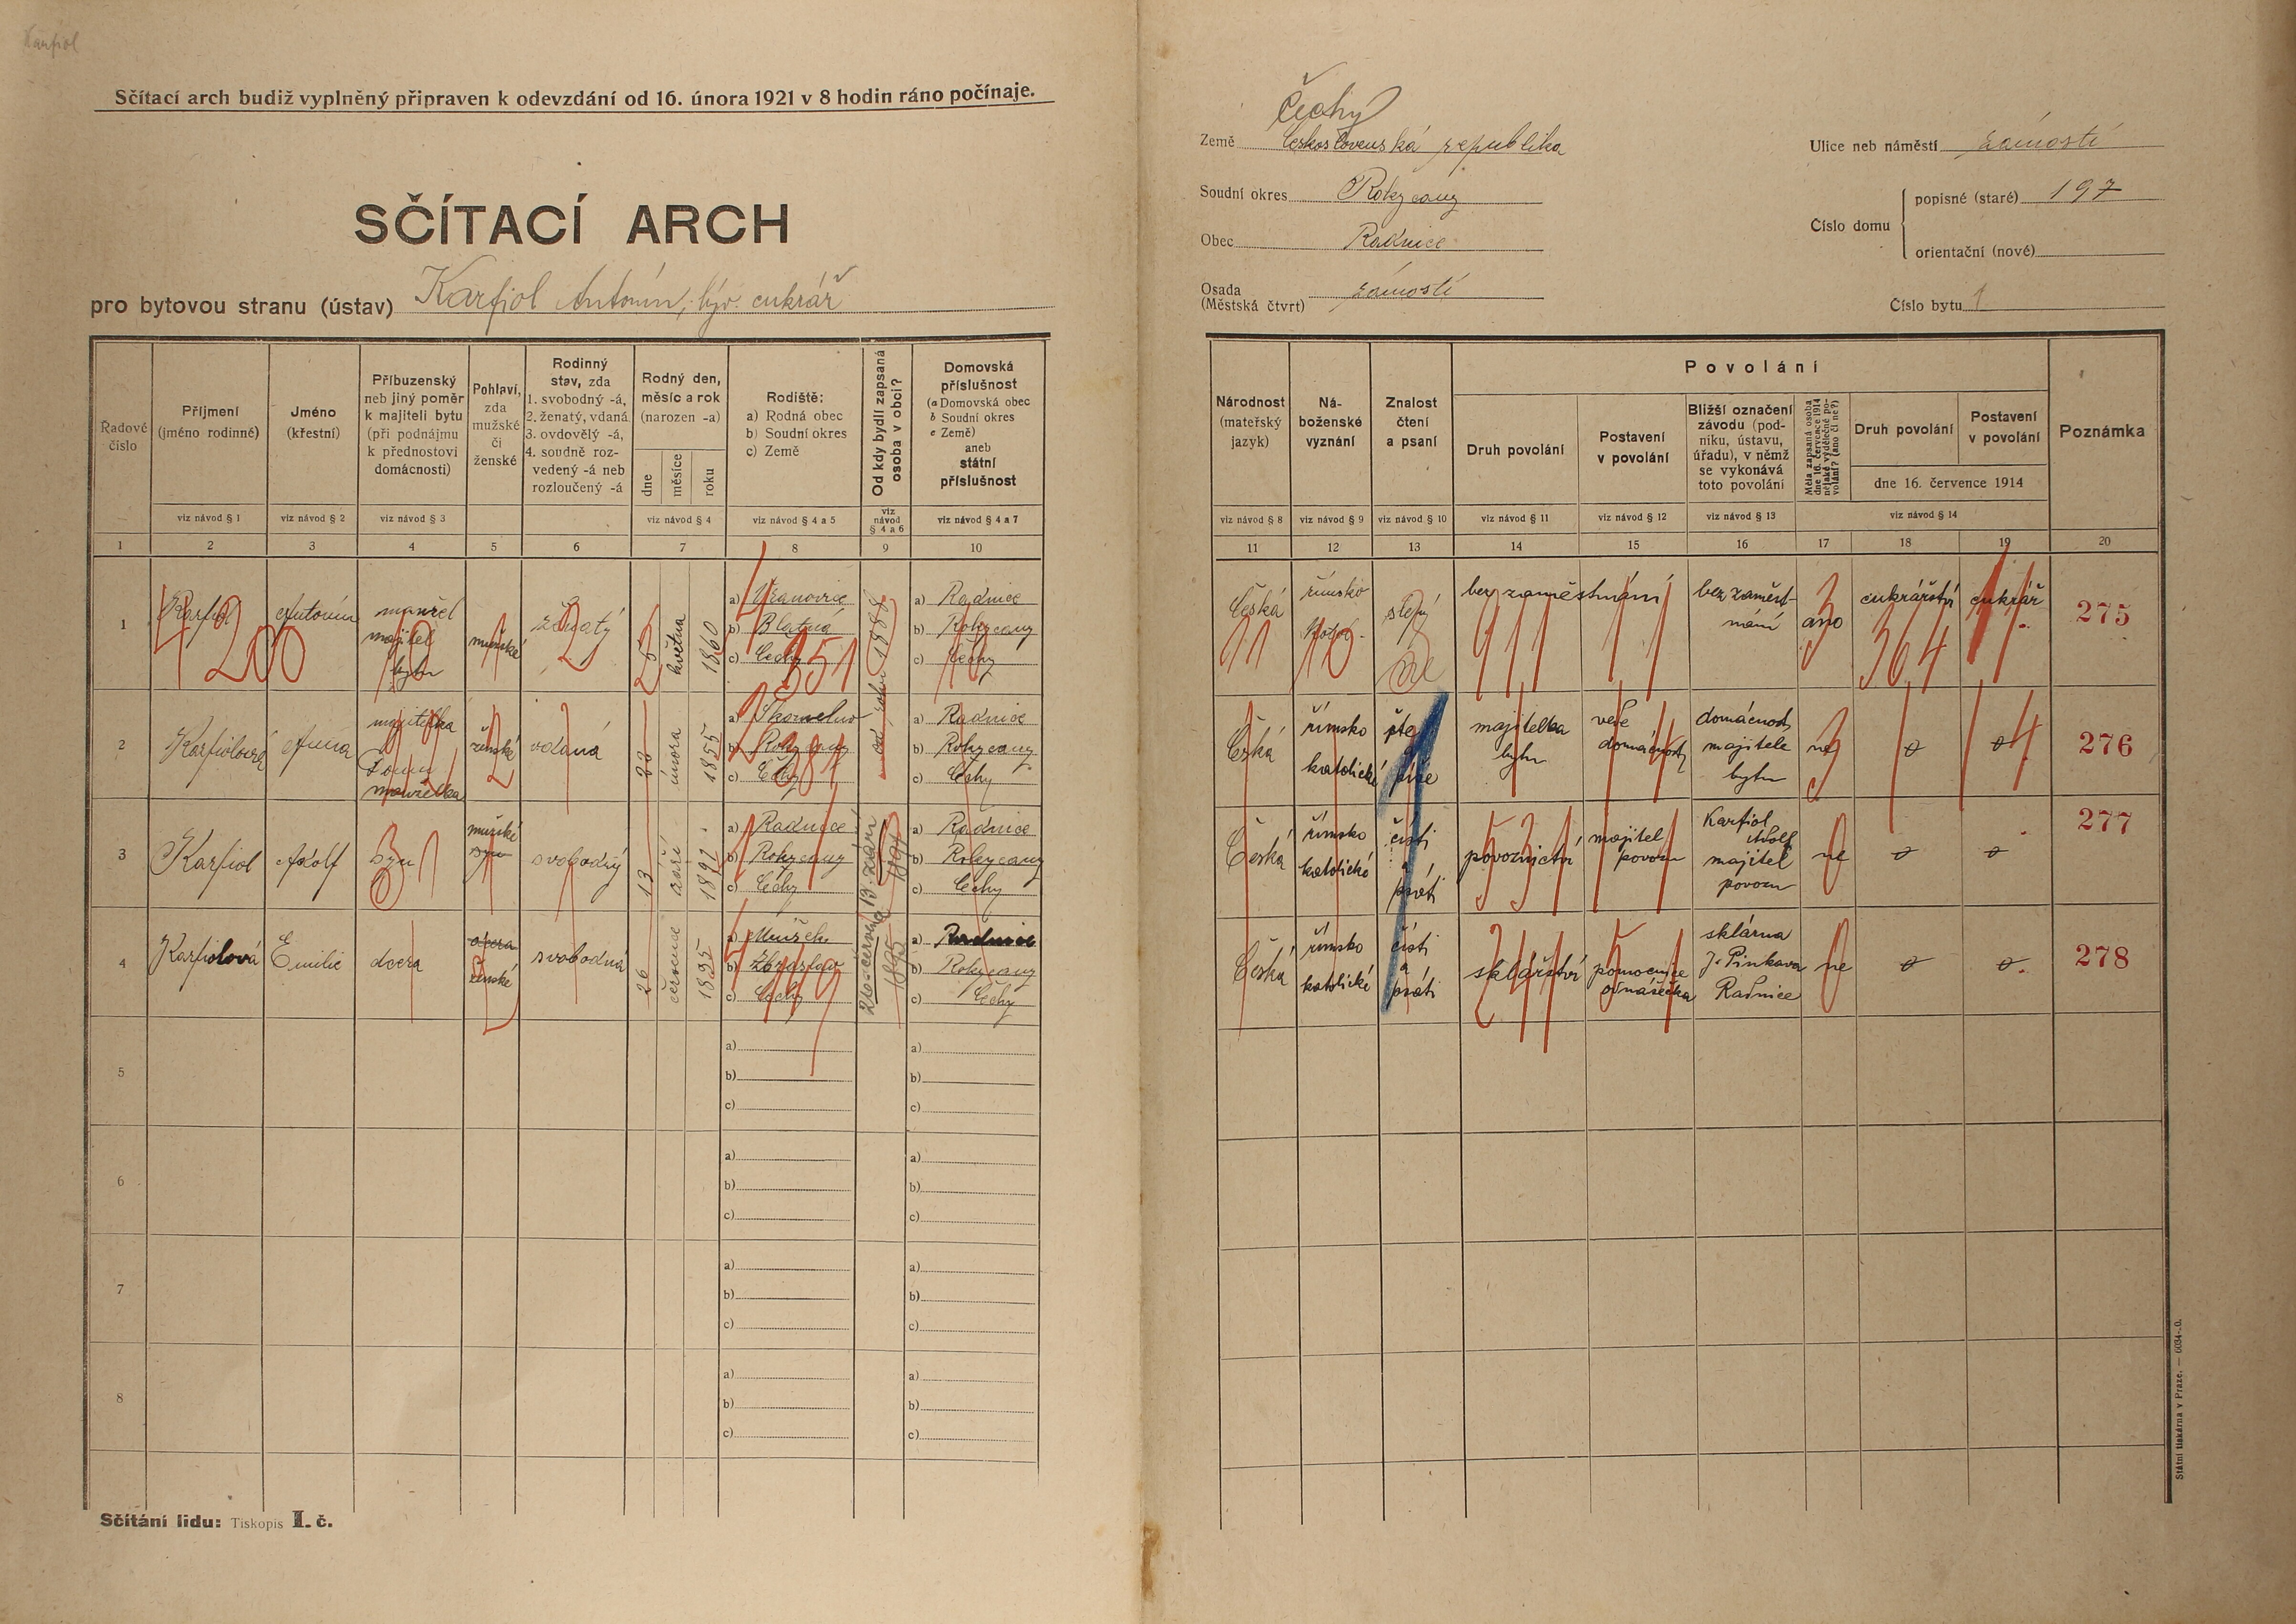 Karfiol
Sčítací arch budiž vyplněný připraven k odevzdání od 16. února 1921 v 8 hodin ráno počínaje.
SČÍTACÍ ARCH
pro bytovou stranu (ústav) Karfiol Antonín, býv. cukrář
Čechy
Země Československá republika
Soudní okres Rokycany
Obec Radnice
Osada (Městská čtvrt) zámostí
Ulice neb náměstí zámostí
Číslo domu
popisné (staré) 197
orientační (nové)
Číslo bytu 1
Řadové číslo
Příjmení (jméno rodinné)
Jméno (křestní)
Příbuzenský neb jiný poměr k majiteli bytu (při podnájmu k přednostovi domácnosti)
Pohlaví, zda mužské či ženské
Rodinný stav, zda
1. svobodný -á,
2. ženatý, vdaná
3. ovdovělý -á,
4. soudně rozvedený -á neb rozloučený -á
Rodný den, měsíc a rok (narozen -a)
dne
měsíce
roku
Rodiště:
a) Rodná obec
b) Soudní okres
c) Země
Od kdy bydlí zapsaná osoba v obci?
Domovská příslušnost
(a Domovská obec
b Soudní okres
c Země)
aneb
státní příslušnost
viz návod § 1
viz návod § 2
viz návod § 3
viz návod § 4
viz návod § 4 a 5
viz návod § 4 a 6
viz návod § 4 a 7
1 2 3 4 5 6 7 8 9 10
Národnost (mateřský jazyk)
Náboženské vyznání
Znalost čtení a psaní
Povolání
Druh povolání
Postavení v povolání
Bližší označení závodu (podniku, ústavu, úřadu), v němž se vykonává toto povolání
Měla zapsaná osoba dne 16. července 1914 nějaké výdělečné povolání? (ano či ne?)
Druh povolání
Postavení v povolání
dne 16. července 1914
Poznámka
viz návod § 8
viz návod § 9
viz návod § 10
viz návod § 11
viz návod § 12
viz návod § 13
viz návod § 14
11 12 13 14 15 16 17 18 19 20
1
Karfiol
Antonín
manžel
majitel
bytu
mužské
ženatý
května
1860
a) Vranovice
b) Blatna
c) Čechy
1888
a) Radnice
b) Rokycany
c) Čechy
Česká
římsko
slepý
bez zaměstnání
bez zaměst-
nání
ano
cukrářství
cukrář
275
2
Karfiolová
Anna
majitelka
manželka
ženská
vdaná
února
1855
a) Skomelno
b) Rokycany
c) Čechy
a) Radnice
b) Rokycany
c) Čechy
Česká
římsko
katolické
čte
píše
majitelka
bytu
vede
domácnost
domácnost
majitele
bytu
ne
276
3
Karfiol
Adolf
syn
mužské
syn
svobodný
13
září
a) Radnice
b) Rokycany
c) Čechy
13 září
a) Radnice
b) Rokycany
c) Čechy
Česká
římsko
katolické
čísti
psáti
povoznictví
majitel
povozu
Karfiol
Adolf
majitel
povozu
ne
277
4
Karfiolová
Emilie
dcera
dcera
ženské
svobodná
26
července
1895
c) Čechy
1895
a) Radnice
b) Rokycany
c) Čechy
Česká
římsko
katolické
čísti
a
psáti
sklářství
pomocnice
odnášečka
sklárna
J. Pinkava
Radnice
ne
278
5
a)
b)
c)
a)
b)
c)
6
a)
b)
c)
a)
b)
c)
7
a)
b)
c)
a)
b)
c)
8
a)
b)
c)
a)
b)
c)
Sčítání lidu: Tiskopis I. č.
Státní tiskárna v Praze. — 6034-.0.